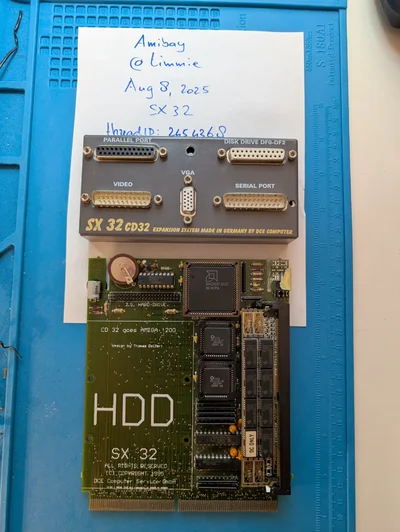 Amibay
@Limmie
Aug 8, 2025
SX 32
thread ID: 2454268
PARALLEL PORT
DISK DRIVE DF0-DF2
VGA
VIDEO
SERIAL PORT
SX 32 CD32 EXPANSION SYSTEM MADE IN GERMANY BY DCE COMPUTER
2.5" HARD-DRIVE
CD 32 goes AMIGA 1200
HDD
SX 32
ALL RIGHTS RESERVED
(C) COPYRIGHT 1995
DCE Computer Service GmbH